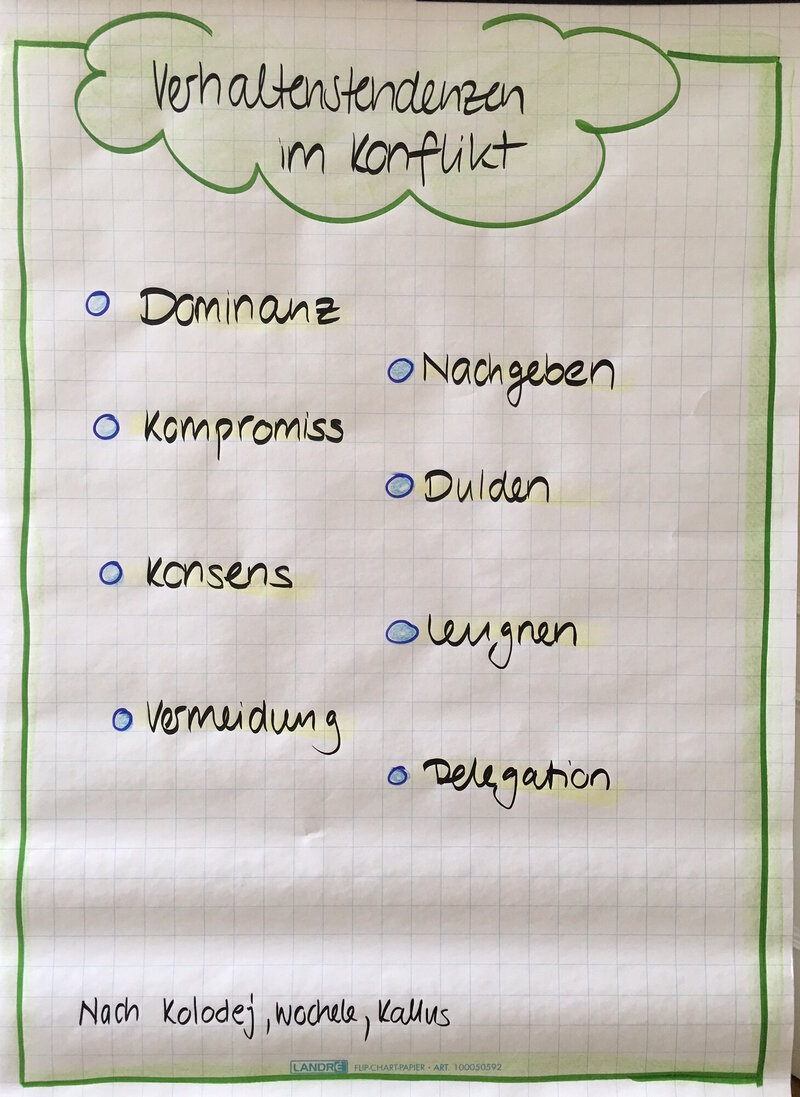 Verhaltenstendenzen
im Konflikt
Dominanz
Nachgeben
Kompromiss
Dulden
Konsens
Leugnen
Vermeidung
Delegation
Nach Kolodej, Wochele, Kallus
LANDRÉ FLIP-CHART-PAPIER • ART. 100050592